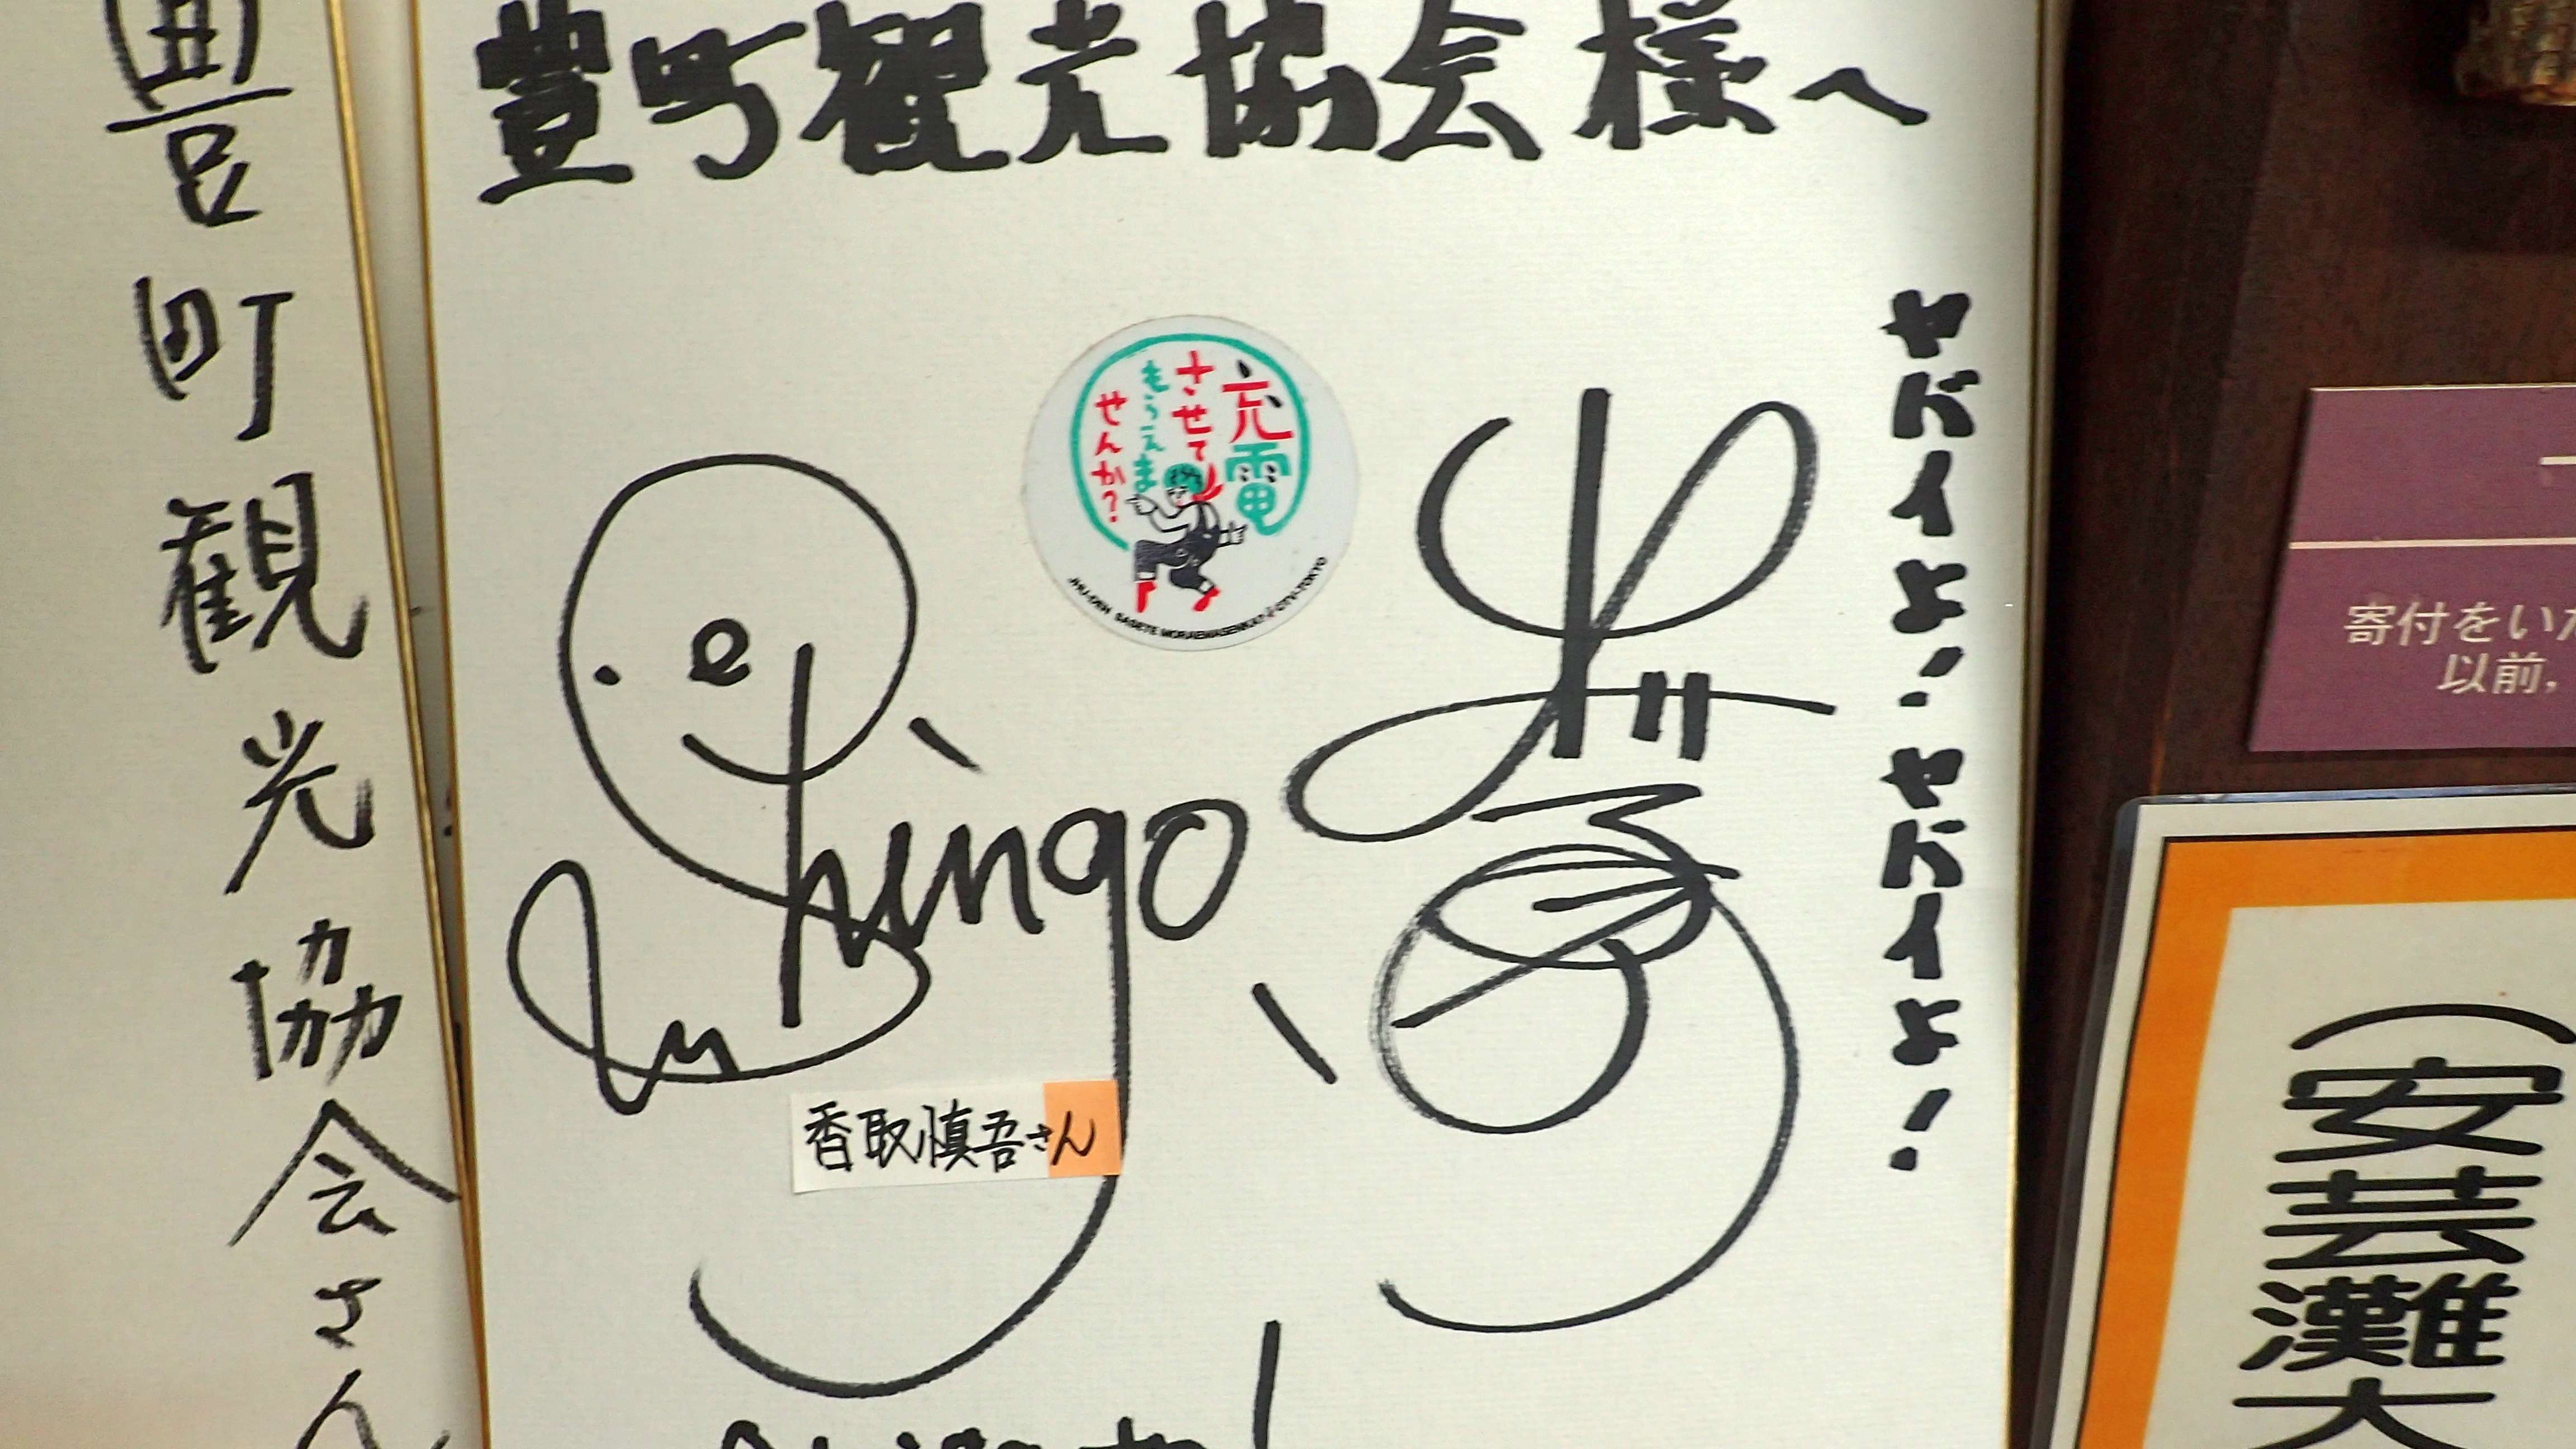 豊町観光協会さん
豊町観光協会様へ
充電
させて
もらえま
せんか?
JYU-DEN SASETE MORAEMASENKA? / CTV-TOKYO
ヤバイよ!!ヤバイよ!!
Shingo
香取慎吾さん
寄付をいた
以前,
(安芸灘大